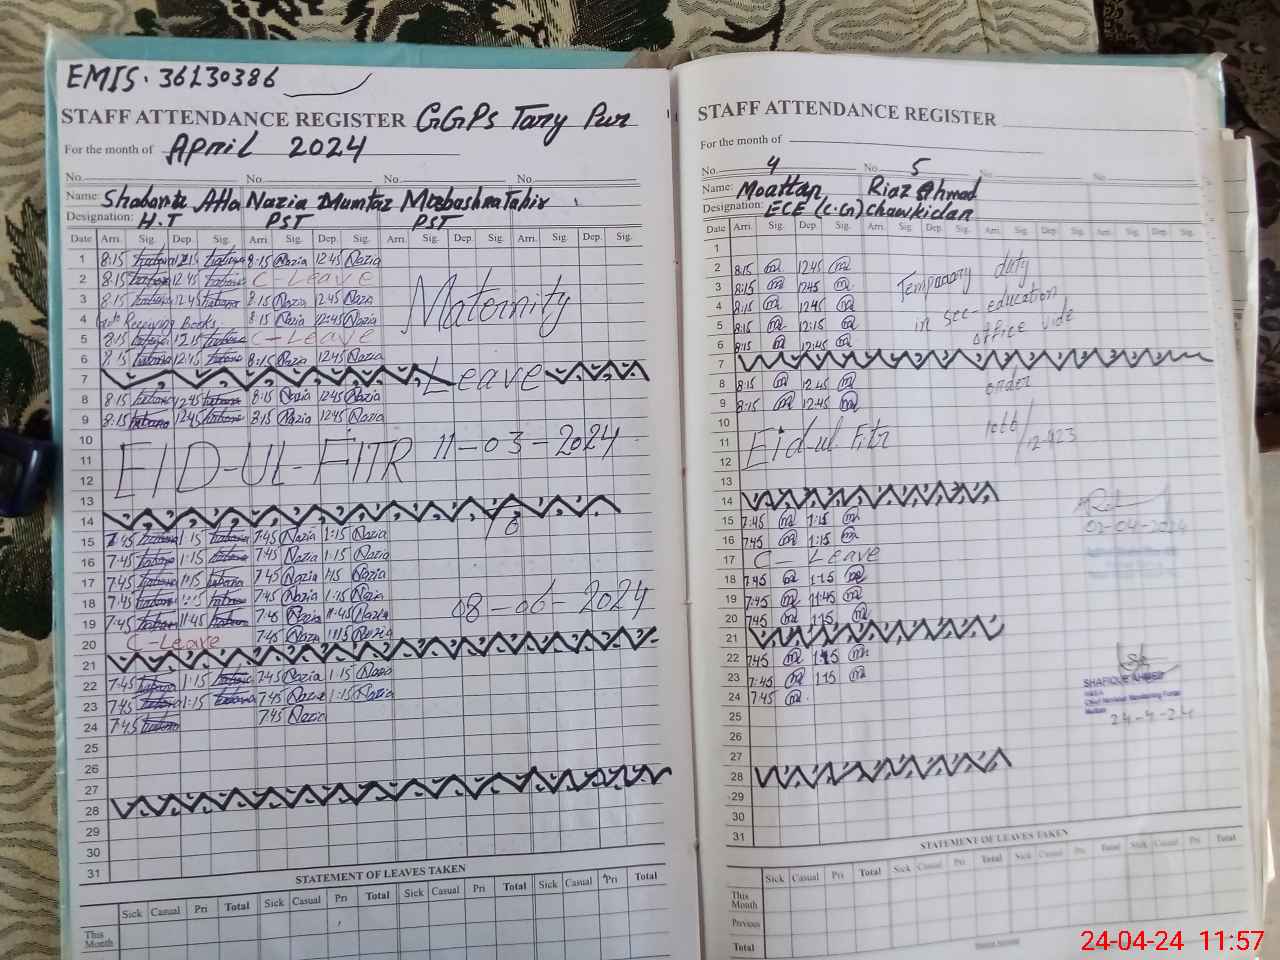 EMIS. 36130386
STAFF ATTENDANCE REGISTER GGPS Tary Pur
For the month of April 2024
No. No. No. No.
Name: Shabana Atta Nazia Mumtaz Mubashra Tahir
Designation: H.T PST PST
Date Arri. Sig. Dep. Sig. Arri. Sig. Dep. Sig. Arri. Sig. Dep. Sig. Arri. Sig. Dep. Sig.
1 8:15 12:15 8:15 Nazia 12:45 Nazia
2 8:15 12:45 C-Leave
3 8:15 12:45 8:15 Nazia 12:45 Nazia
4 Receiving Books 8:15 Nazia 12:45 Nazia
5 8:15 12:15 C-Leave
6 8:15 12:45 8:15 Nazia 12:45 Nazia
Maternity
7 Leave
8 8:15 12:45 8:15 Nazia 12:45 Nazia
9 8:15 12:45 8:15 Nazia 12:45 Nazia
10
11 EID-UL-FITR 11-03-2024
12
13
14
To
15 7:45 1:15 7:45 Nazia 1:15 Nazia
16 7:45 1:15 7:45 Nazia 1:15 Nazia
17 7:45 1:15 7:45 Nazia 1:15 Nazia
18 7:45 7:45 Nazia 1:15 Nazia
19 7:45 11:45 7:45 Nazia 11:45 Nazia
08-06-2024
20 C-Leave 7:45 Nazia Nazia
21
22 7:45 1:15 7:45 Nazia 1:15 Nazia
23 7:45 1:15 7:45 Nazia 1:15 Nazia
24 7:45 7:45 Nazia
25
26
27
28
29
30
31
STATEMENT OF LEAVES TAKEN
Sick Casual Pri Total Sick Casual Pri Total Sick Casual Pri Total Sick Casual Pri Total
This Month
STAFF ATTENDANCE REGISTER
For the month of
No. 4 No. 5 No. No.
Name: Moattan Riaz Ahmad
Designation: ECE (C.G) Chawkidar
Date Arri. Sig. Dep. Sig. Arri. Sig. Dep. Sig. Arri. Sig. Dep. Sig. Arri. Sig. Dep. Sig.
1
2 8:15 m 12:45 m
3 8:15 m 12:45 m
4 8:15 m 12:45 m
5 8:15 m 12:15 m
6 8:15 m 12:45 m
Temporary duty
in sec-education
office vide
7
8 8:15 m 12:45 m order
9 8:15 m 12:45 m
10
11 Eid-ul Fitr 1066/
12
13
14
15 7:45 m 1:15 m
02-04-2024
16 7:45 m 1:15 m
17 C - Leave
18 7:45 m 1:15 m
19 7:45 m 11:45 m
20 7:45 m 1:15 m
21
22 7:45 m 1:15 m
23 7:45 m 1:15 m
24 7:45 m
SHAFIQUE AHMED
24-4-24
25
26
27
28
29
30
31
STATEMENT OF LEAVES TAKEN
Sick Casual Pri Total Sick Casual Pri Total Sick Casual Pri Total
This Month
Previous
Total
24-04-24 11:57